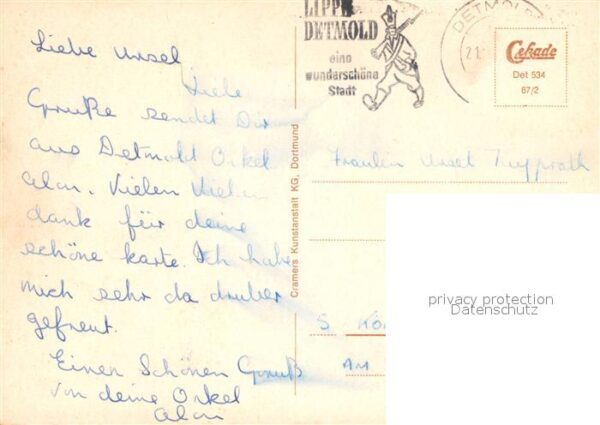 Liebe Ursel
Viele
Grüße sendet Dir
aus Detmold Onkel
Alan. Vielen lieben
dank für deine
schöne karte. Ich habe
mich sehr da druber
gefreut.
Einen Schönen Gruß
von deine Onkel
Alan
LIPPE
DETMOLD
eine
wunderschöne
Stadt
DETMOLD
21.
Cekade
Det 534
67/2
Cramers Kunstanstalt KG, Dortmund
Fräulein Ursel
privacy protection
Datenschutz
5 KÖ
AM